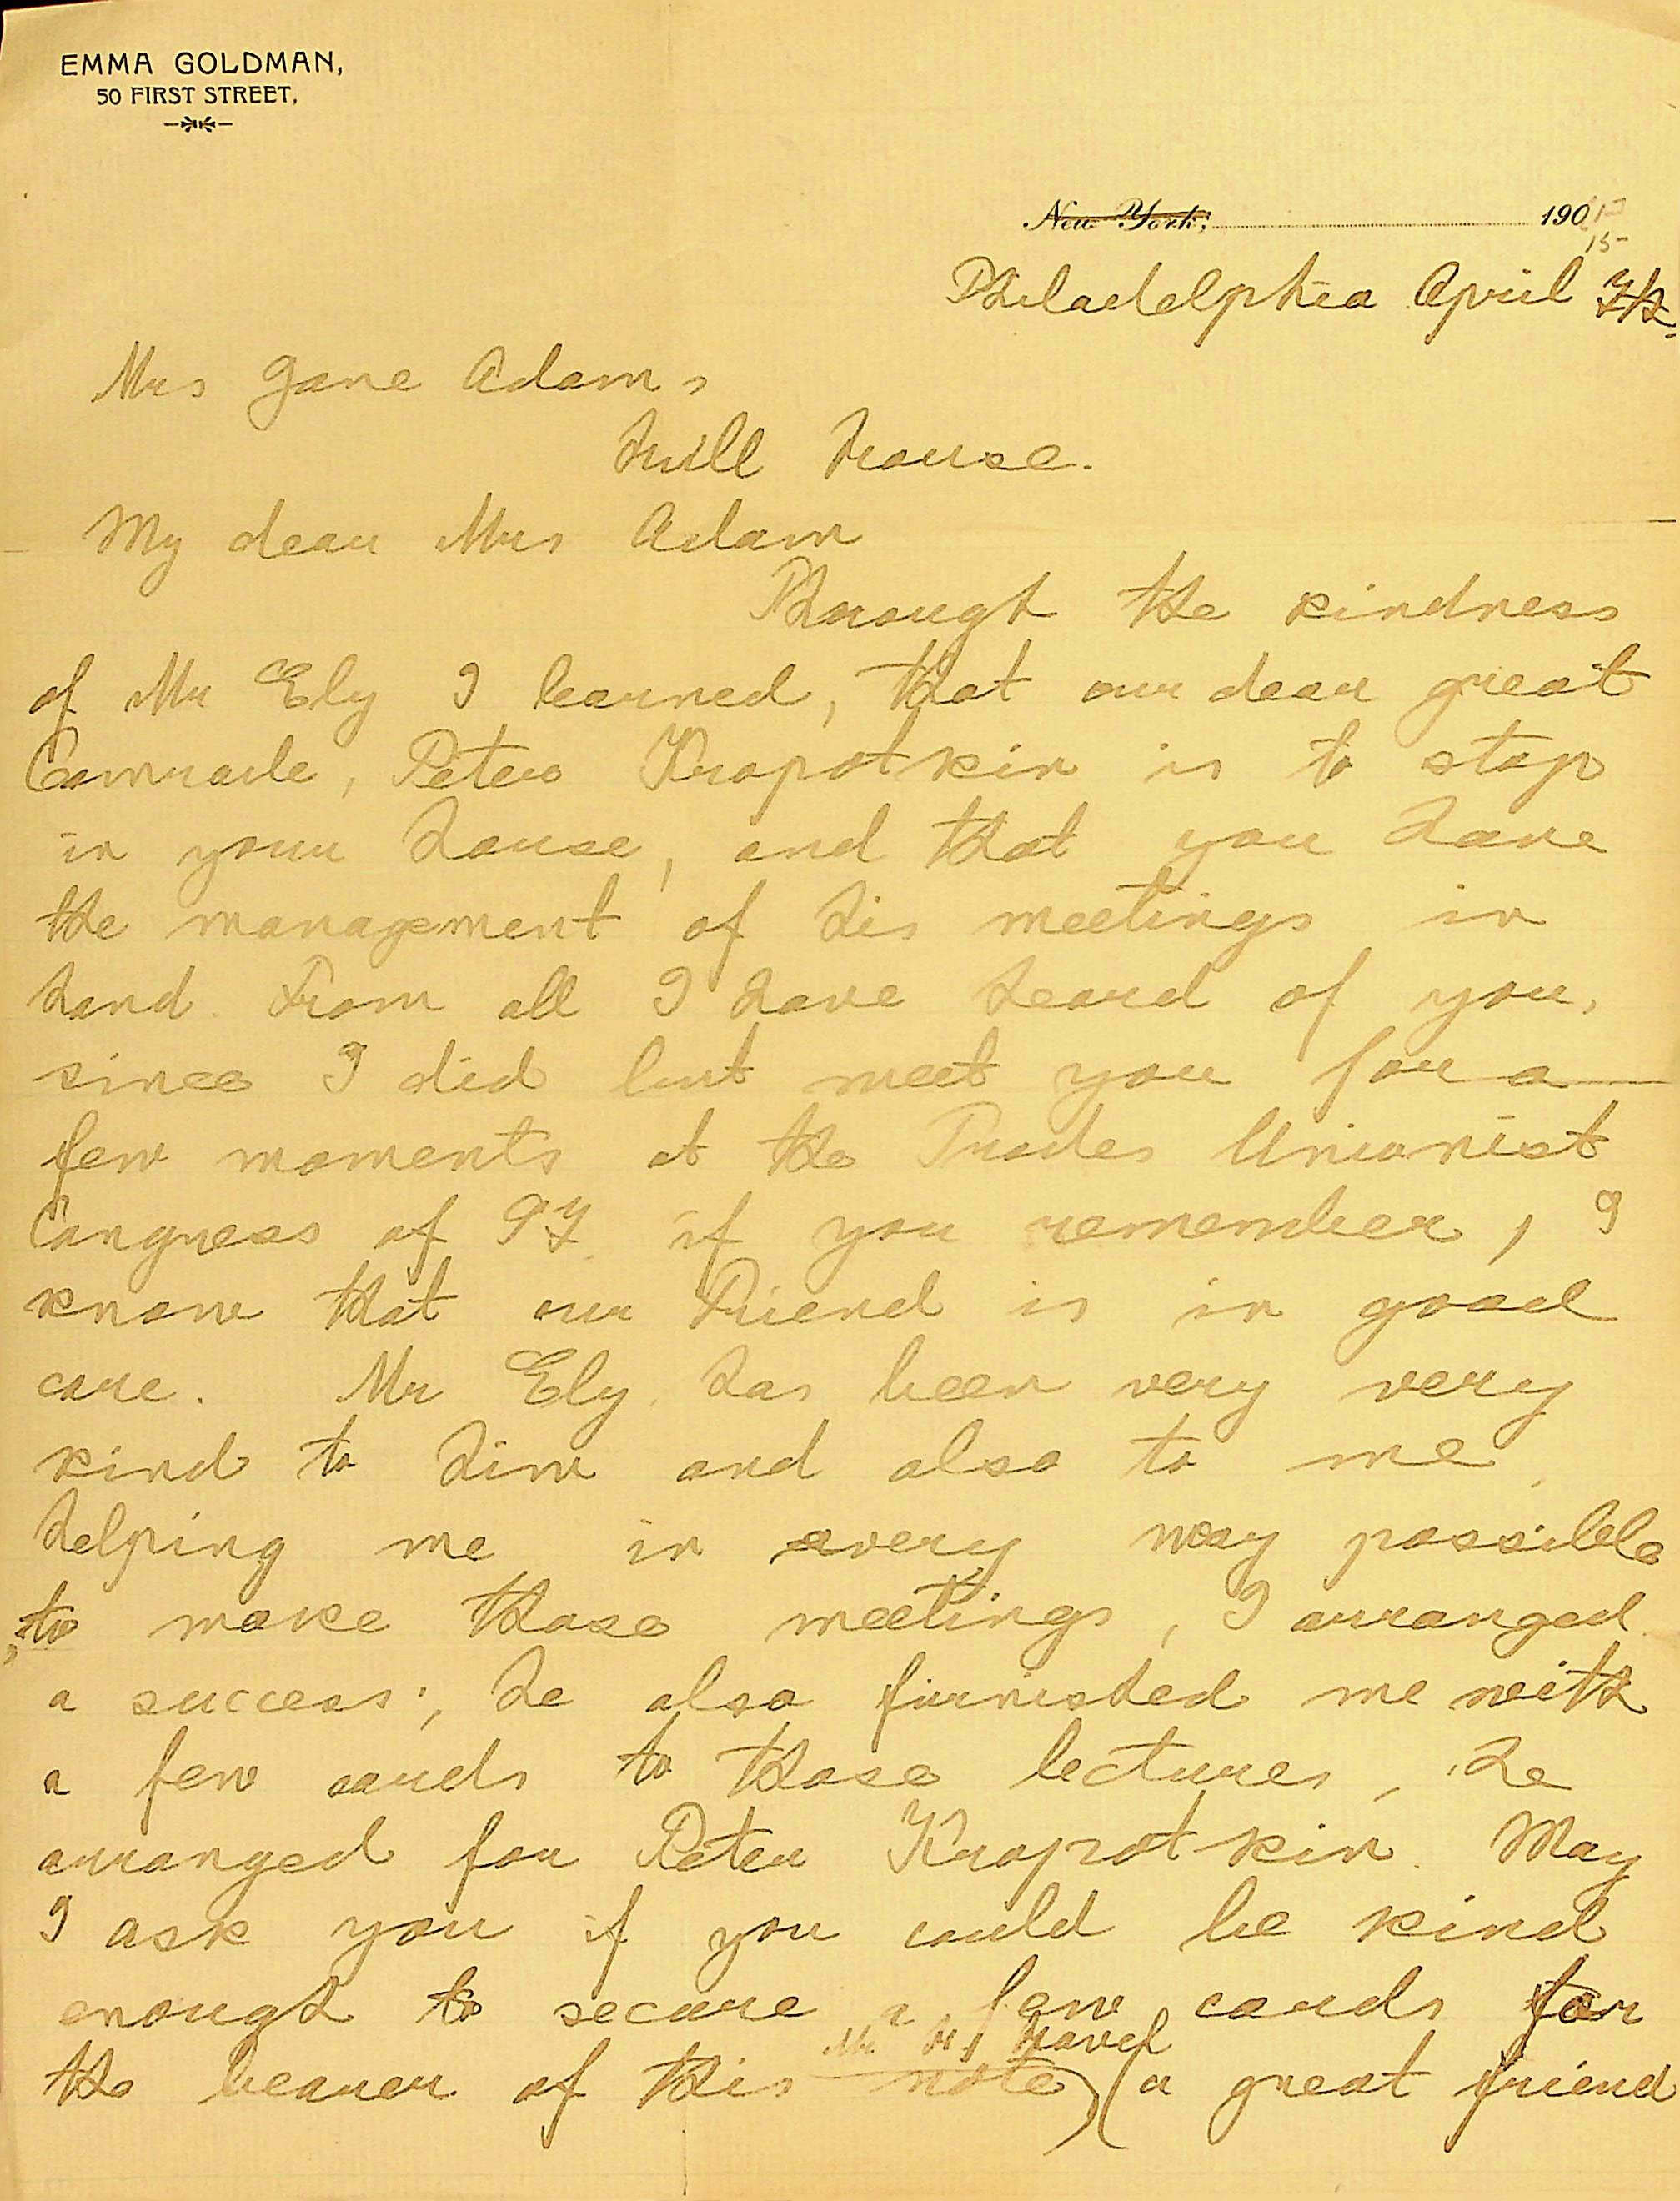 EMMA GOLDMAN,
50 FIRST STREET,
New York, 190
Philadelphia April
Mrs Jane Adams
Hull House.
My dear Mrs Adam
Through the kindness
of Mr Ely I learned, that our dear great
Comrade, Peter Kropotkin is to stop
in your house, and that you have
the management of his meetings in
hand. From all I have heard of you,
since I did but meet you for a
few moments at the Trades Unionist
Congress of 97 if you remember, I
know that our Friend is in good
care. Mr Ely has been very very
kind to him and also to me,
helping me in every way possible
to make those meetings, I arranged
a success; he also furnished me with
a few cards to those lectures, he
arranged for Peter Kropotkin. May
I ask you if you could be kind
enough to secure a few cards for
Mr H. Havel
the bearer of this note, (a great friend